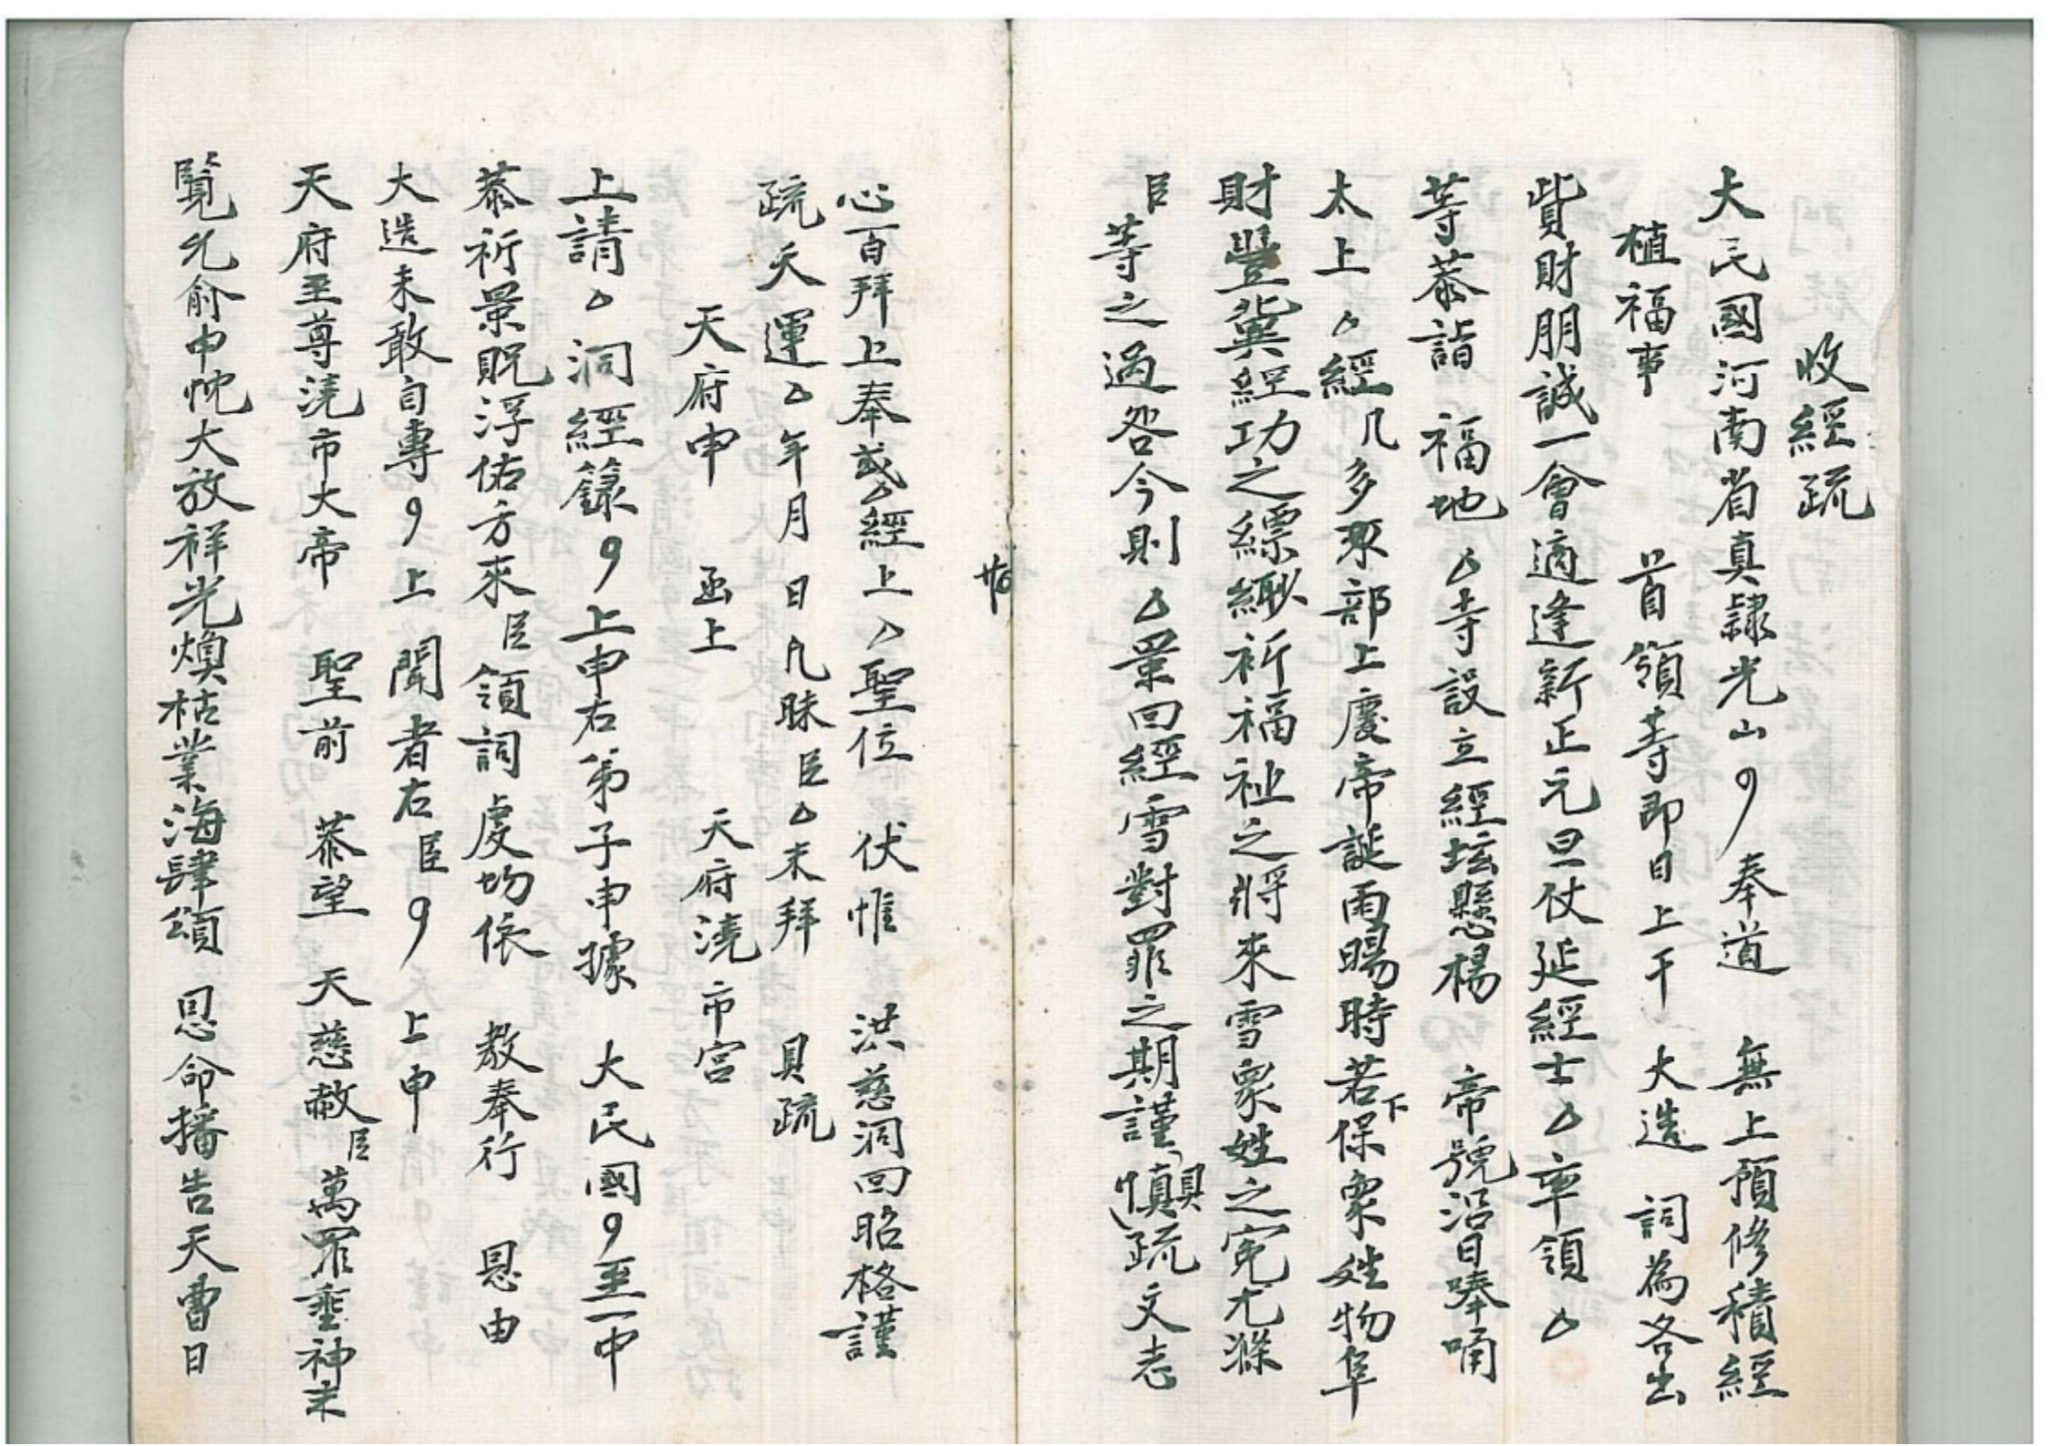 收經疏
大民國河南省真隸光山 奉道 無上預修積經
植福事 首領等即日上干 大造 詞為各出
貲財朋誠一會適逢新正元旦仗延經士△率領△
等恭詣 福地△寺設立經坛懸楊 帝號沿日唪哺
太上△經几多眾部上慶帝誕雨暘時若下保眾姓物阜
財豐冀經功之縹緲祈福祉之將來雪眾姓之寃尤滌
臣等之過咎今則△ 回經雪對罪之期謹具慎疏文志
心百拜上奉或△經上△聖位 伏惟 洪慈洞回昭格謹
疏天運△年月 日凡昧臣△末拜 具疏
天府申 函上 天府澆市宮
上請△洞經籙 上申右弟子申據 大民國 至一中
恭祈景貺浮佑方來臣領詞虔切依 教奉行 恩由
大造未敢自專 上聞者右臣 上申
天府至尊澆市大帝 聖前 恭望 天慈赦臣萬罪垂神末
覽允俞中忱大放祥光煥枯業海肆頒 恩命播告天曹日